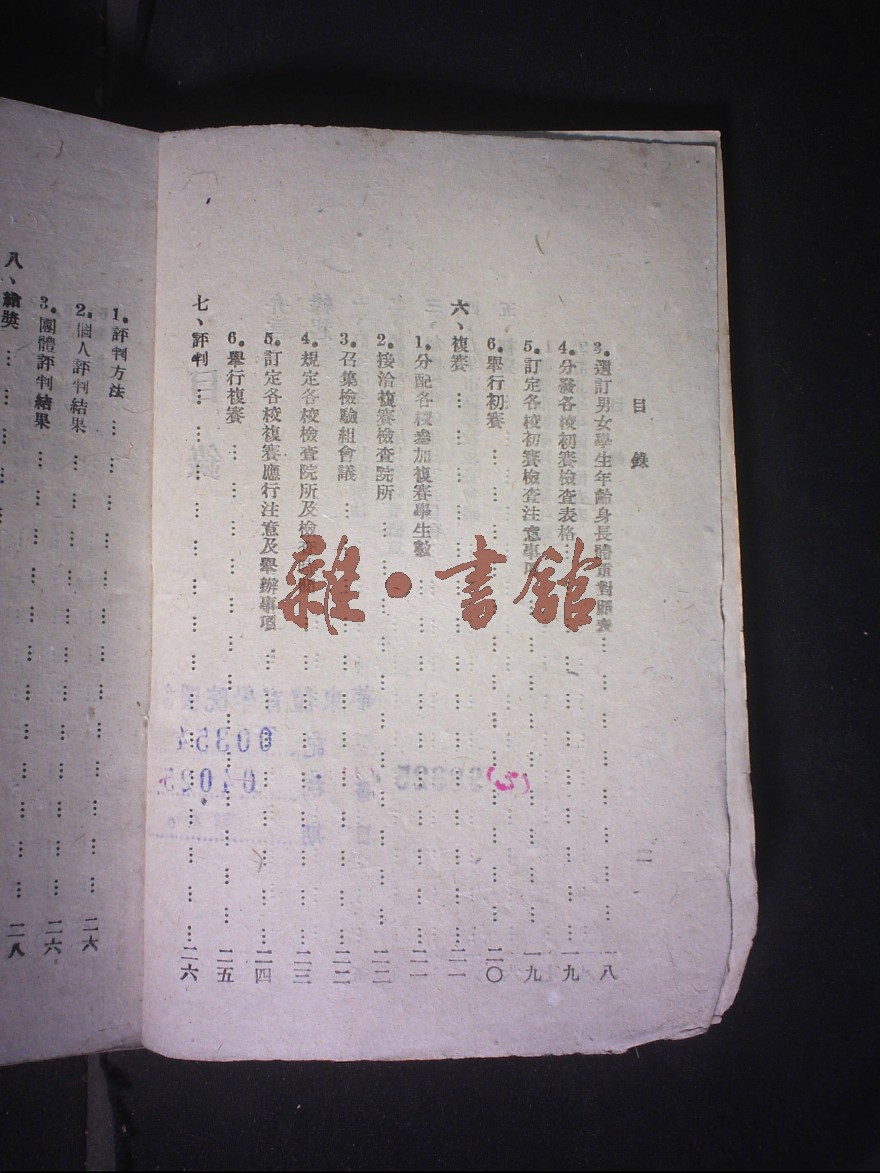 目錄
二
3.選訂男女學生年齡身長體重對照表……………………一八
4.分發各校初賽檢查表格……………………一九
5.訂定各校初賽檢查注意事項……………………一九
6.舉行初賽……………………二〇
六、複賽……………………二一
1.分配各校參加複賽學生數……………………二一
2.接洽複賽檢查院所……………………二二
3.召集檢驗組會議……………………二二
4.規定各校檢查院所及檢查時間……………………二三
5.訂定各校複賽應行注意及舉辦事項……………………二四
6.舉行複賽……………………二五
七、評判……………………二六
1.評判方法……………………二六
2.個人評判結果……………………二六
3.團體評判結果……………………二八
八、給獎……………………
雜·書館
00354
04025
(5)